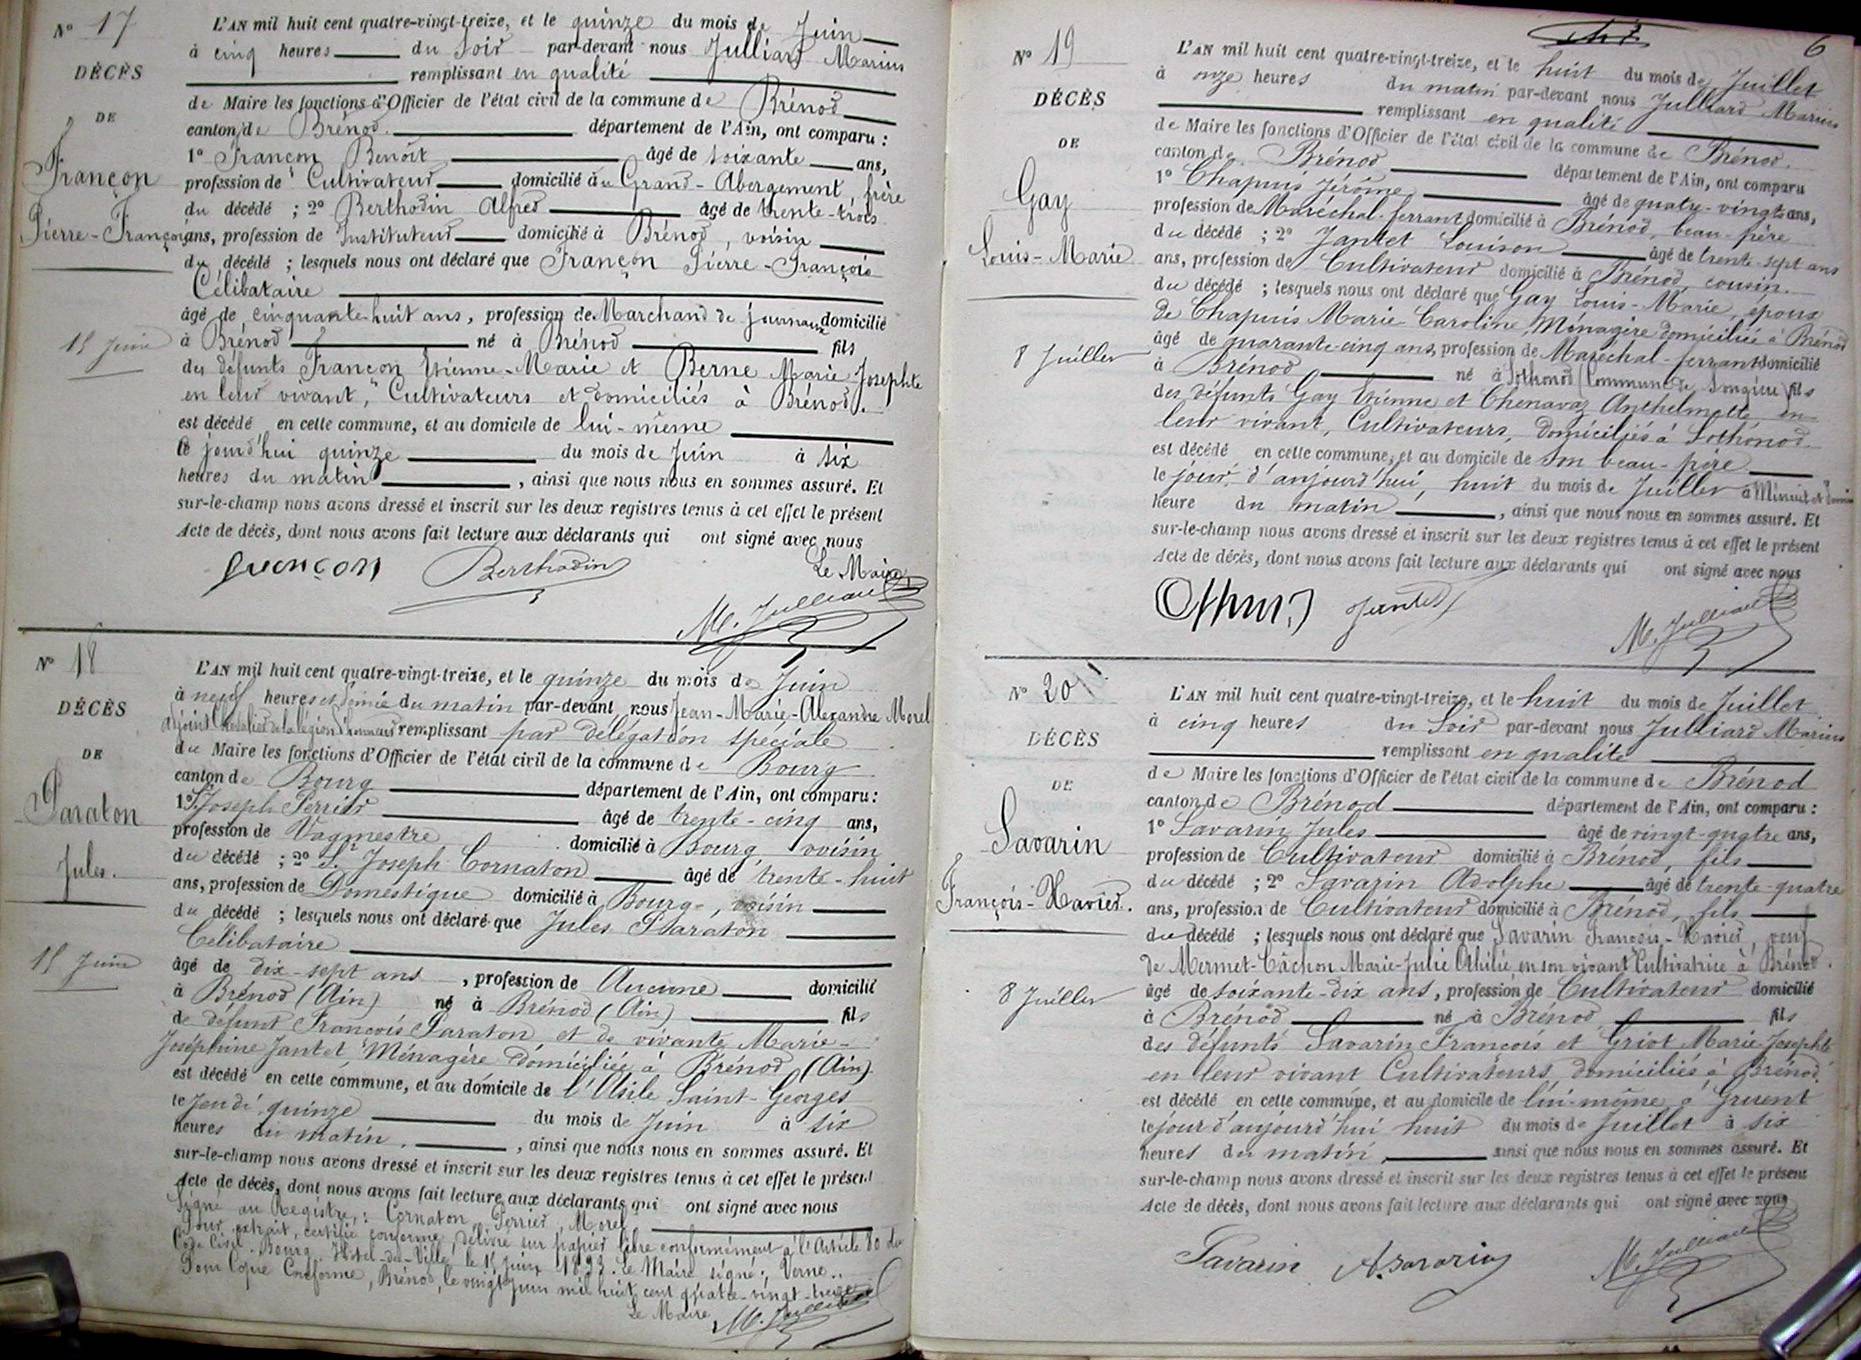 N° 17
DÉCÈS
DE
Françon
Pierre-François
15 Juin
L'AN mil huit cent quatre-vingt-treize, et le quinze du mois de Juin
à cinq heures du Soir par-devant nous Julliard Marius
remplissant en qualité
de Maire les fonctions d'Officier de l'état civil de la commune de Brénod
canton de Brénod département de l'Ain, ont comparu :
1° Françon Benoît âgé de soixante ans,
profession de Cultivateur domicilié à Grand-Abergement, frère
du décédé ; 2° Berthodin Alfred âgé de trente-trois
ans, profession de Instituteur domicilié à Brénod, voisin
du décédé ; lesquels nous ont déclaré que Françon Pierre-François
Célibataire
âgé de cinquante huit ans, profession de Marchand de journaux domicilié
à Brénod né à Brénod fils
des défunts Françon Etienne-Marie et Berne Marie Josephte
en leur vivant, Cultivateurs et domiciliés à Brénod.
est décédé en cette commune, et au domicile de lui-même
le jourd'hui quinze du mois de Juin à six
heures du matin, ainsi que nous nous en sommes assuré. Et
sur-le-champ nous avons dressé et inscrit sur les deux registres tenus à cet effet le présent
Acte de décès, dont nous avons fait lecture aux déclarants qui ont signé avec nous
françon Berthodin Le Maire
M. Julliard
N° 18
DÉCÈS
DE
Paraton
Jules.
15 Juin
L'AN mil huit cent quatre-vingt-treize, et le quinze du mois de Juin
à neuf heures et demie du matin par-devant nous Jean-Marie-Alexandre Morel
adjoint Chevalier de la légion d'honneur remplissant par délégation spéciale
du Maire les fonctions d'Officier de l'état civil de la commune de Bourg
canton de Bourg département de l'Ain, ont comparu :
1° Joseph Perrier âgé de trente-cinq ans,
profession de Vagmestre domicilié à Bourg voisin
du décédé ; 2° Joseph Cornaton âgé de trente-huit
ans, profession de Domestique domicilié à Bourg, voisin
du décédé ; lesquels nous ont déclaré que Jules Paraton
Célibataire
âgé de dix-sept ans, profession de Aucune domicilié
à Brénod (Ain) né à Brénod (Ain) fils
de défunt François Paraton et de vivante Marie-
Joséphine Jantet Ménagère domiciliée à Brénod (Ain)
est décédé en cette commune, et au domicile de l'Asile Saint-Georges
le Jeudi quinze du mois de Juin à six
heures du matin, ainsi que nous nous en sommes assuré. Et
sur-le-champ nous avons dressé et inscrit sur les deux registres tenus à cet effet le présent
Acte de décès, dont nous avons fait lecture aux déclarants qui ont signé avec nous
Signé au Registre : Cornaton, Perrier, Morel
Pour extrait, certifié conforme, délivré sur papier libre conformément à l'Article 80 du
Code Civil. Bourg, Hôtel-de-Ville, le 15 juin 1893. Le Maire signé : Verne.
Pour Copie Conforme, Brénod, le vingt juin mil huit cent quatre-vingt-treize
Le Maire M. Julliard
6
N° 19
DÉCÈS
DE
Gay
Louis-Marie
8 Juillet
L'AN mil huit cent quatre-vingt-treize, et le huit du mois de Juillet
à onze heures du matin par-devant nous Julliard Marius
remplissant en qualité
de Maire les fonctions d'Officier de l'état civil de la commune de Brénod.
canton de Brénod département de l'Ain, ont comparu
1° Chapuis Jérôme âgé de quatre-vingts ans,
profession de Maréchal-ferrant domicilié à Brénod, beau-père
du décédé ; 2° Jantet Louison âgé de trente-sept ans
ans, profession de Cultivateur domicilié à Brénod, cousin.
du décédé ; lesquels nous ont déclaré que Gay Louis-Marie, époux
de Chapuis Marie Caroline Ménagère domiciliée à Brénod
âgé de quarante-cinq ans, profession de Maréchal-ferrant domicilié
à Brénod né à Sothonod (Commune de Songieu) fils
des défunts Gay Etienne et Chenavaz Anthelmette en
leur vivant, Cultivateurs, domiciliés à Sothonod
est décédé en cette commune, et au domicile de son beau-père
le jour d'aujourd'hui, huit du mois de Juillet à Minuit et demie
heure du matin, ainsi que nous nous en sommes assuré. Et
sur-le-champ nous avons dressé et inscrit sur les deux registres tenus à cet effet le présent
Acte de décès, dont nous avons fait lecture aux déclarants qui ont signé avec nous
Jantet
M. Julliard
N° 20
DÉCÈS
DE
Savarin
François-Xavier.
8 Juillet
L'AN mil huit cent quatre-vingt-treize, et le huit du mois de Juillet
à cinq heures du Soir par-devant nous Julliard Marius
remplissant en qualité
de Maire les fonctions d'Officier de l'état civil de la commune de Brénod
canton de Brénod département de l'Ain, ont comparu :
1° Savarin Jules âgé de vingt-quatre ans,
profession de Cultivateur domicilié à Brénod, fils
du décédé ; 2° Savarin Adolphe âgé de trente-quatre
ans, profession de Cultivateur domicilié à Brénod, fils
du décédé ; lesquels nous ont déclaré que Savarin François-Xavier, veuf
de Mermet-Câchon Marie-Julie Othilie, en son vivant Cultivatrice à Brénod.
âgé de soixante-dix ans, profession de Cultivateur domicilié
à Brénod né à Brénod fils
des défunts Savarin François et Griot Marie-Josephte
en leur vivant Cultivateurs, domiciliés à Brénod.
est décédé en cette commune, et au domicile de lui-même à Gruent
le jour d'aujourd'hui huit du mois de Juillet à six
heures du matin, ainsi que nous nous en sommes assuré. Et
sur-le-champ nous avons dressé et inscrit sur les deux registres tenus à cet effet le présent
Acte de décès, dont nous avons fait lecture aux déclarants qui ont signé avec nous
Savarin A. Savarin M. Julliard